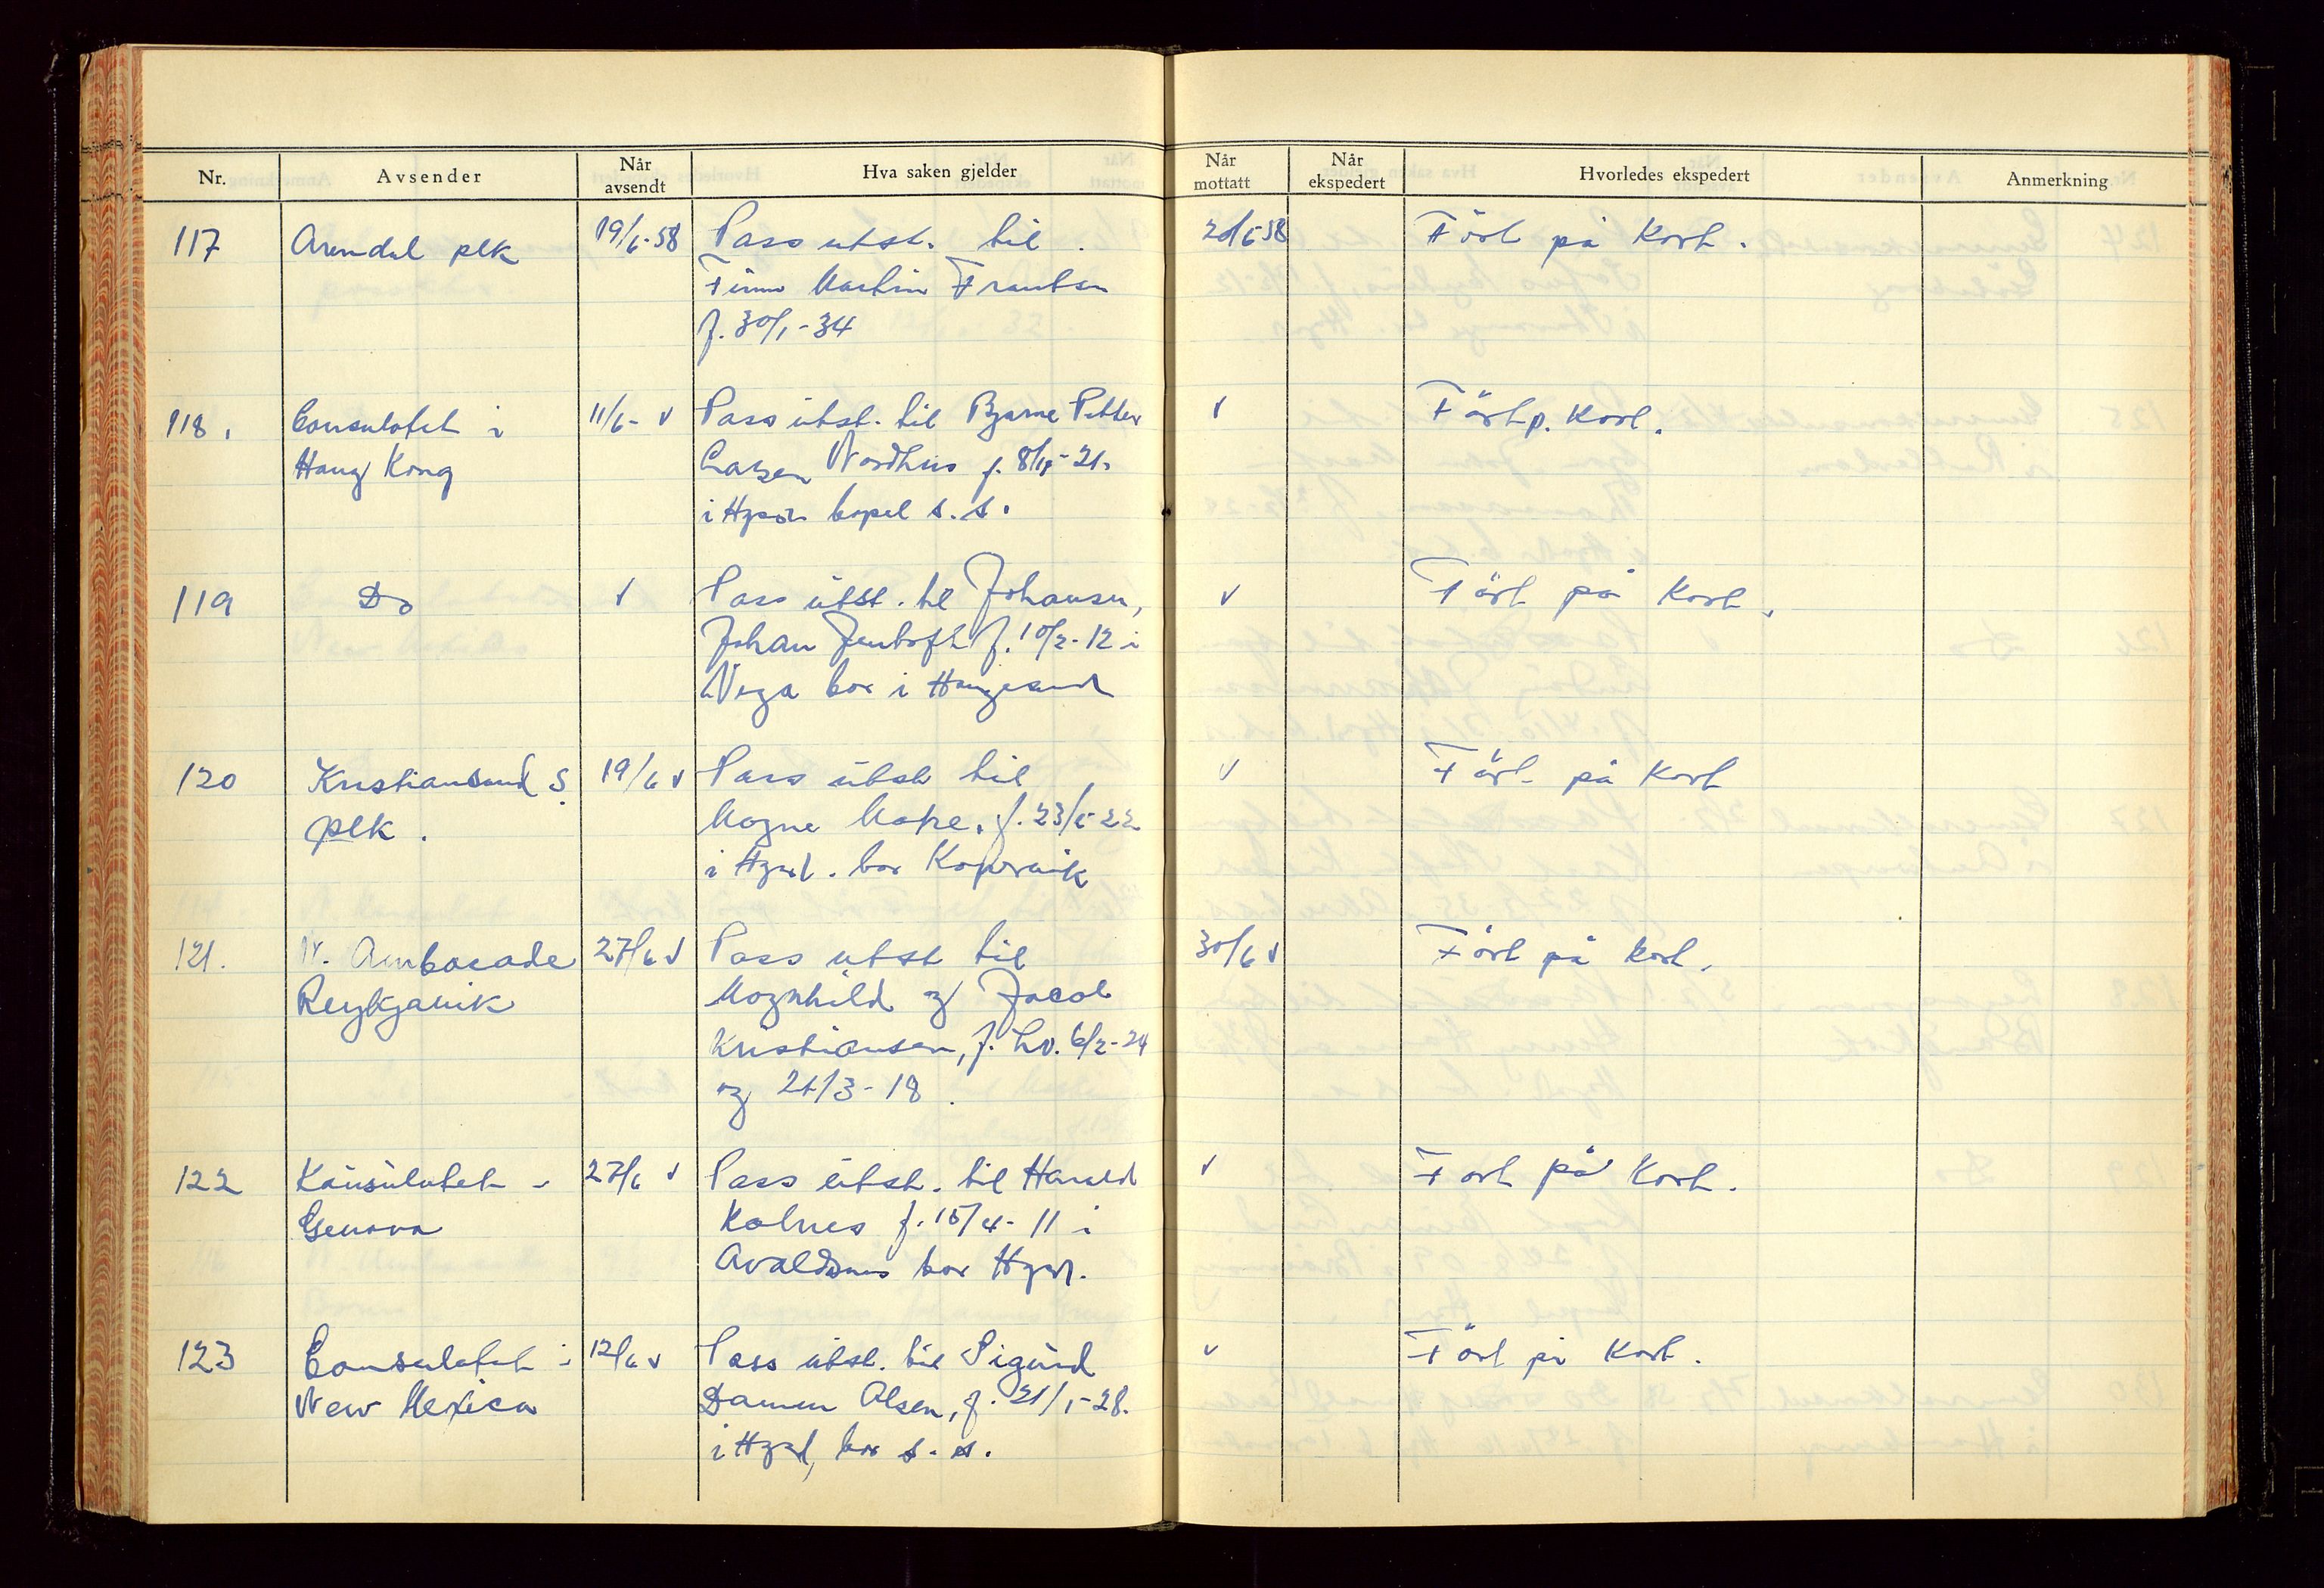 Nr. Avsender Når avsendt Hva saken gjelder Når mottatt Når ekspedert Hvorledes ekspedert Anmerkning
117 Arendal plk 19/6-58 Pass utst. til 20/6-58 Ført på Kort.
Finn Martin Frantsen
f. 30/1-34
118. Consulatet i 11/6- v Pass utst. til Bjarne Petter v Ført p. Kort.
Hong Kong Larsen Nordhus f. -21.
i Hgsn bopel s.s.
119 Do v Pass utst. til Johansen, v Ført på Kort.
Johan Jentoft f. 10/2-12 i
Vega bor i Haugesund
120 Kristiansand S. 19/6 v Pass utst til v Ført på Kort
plk. Mogne f. -22
i Hgsd. bor Kopervik
121. N. Ambasade 27/6 v Pass utst til 30/6 v Ført på Kort.
Reykjavik Magnhild og Jacob
Kristiansen, f. hv. 6/2-24
og 21/3-18.
122 Konsulatet i 27/6 v Pass utst. til Harald v Ført på Kort.
Genova Kolnes f. 15/4-11 i
Avaldsnes bor Hgsd.
123 Consulatet i 12/6 v Pass utst. til Sigurd v Ført på Kort.
New Mexico Damm Olsen, f. 21/1-28.
i Hgsd, bor s.s.